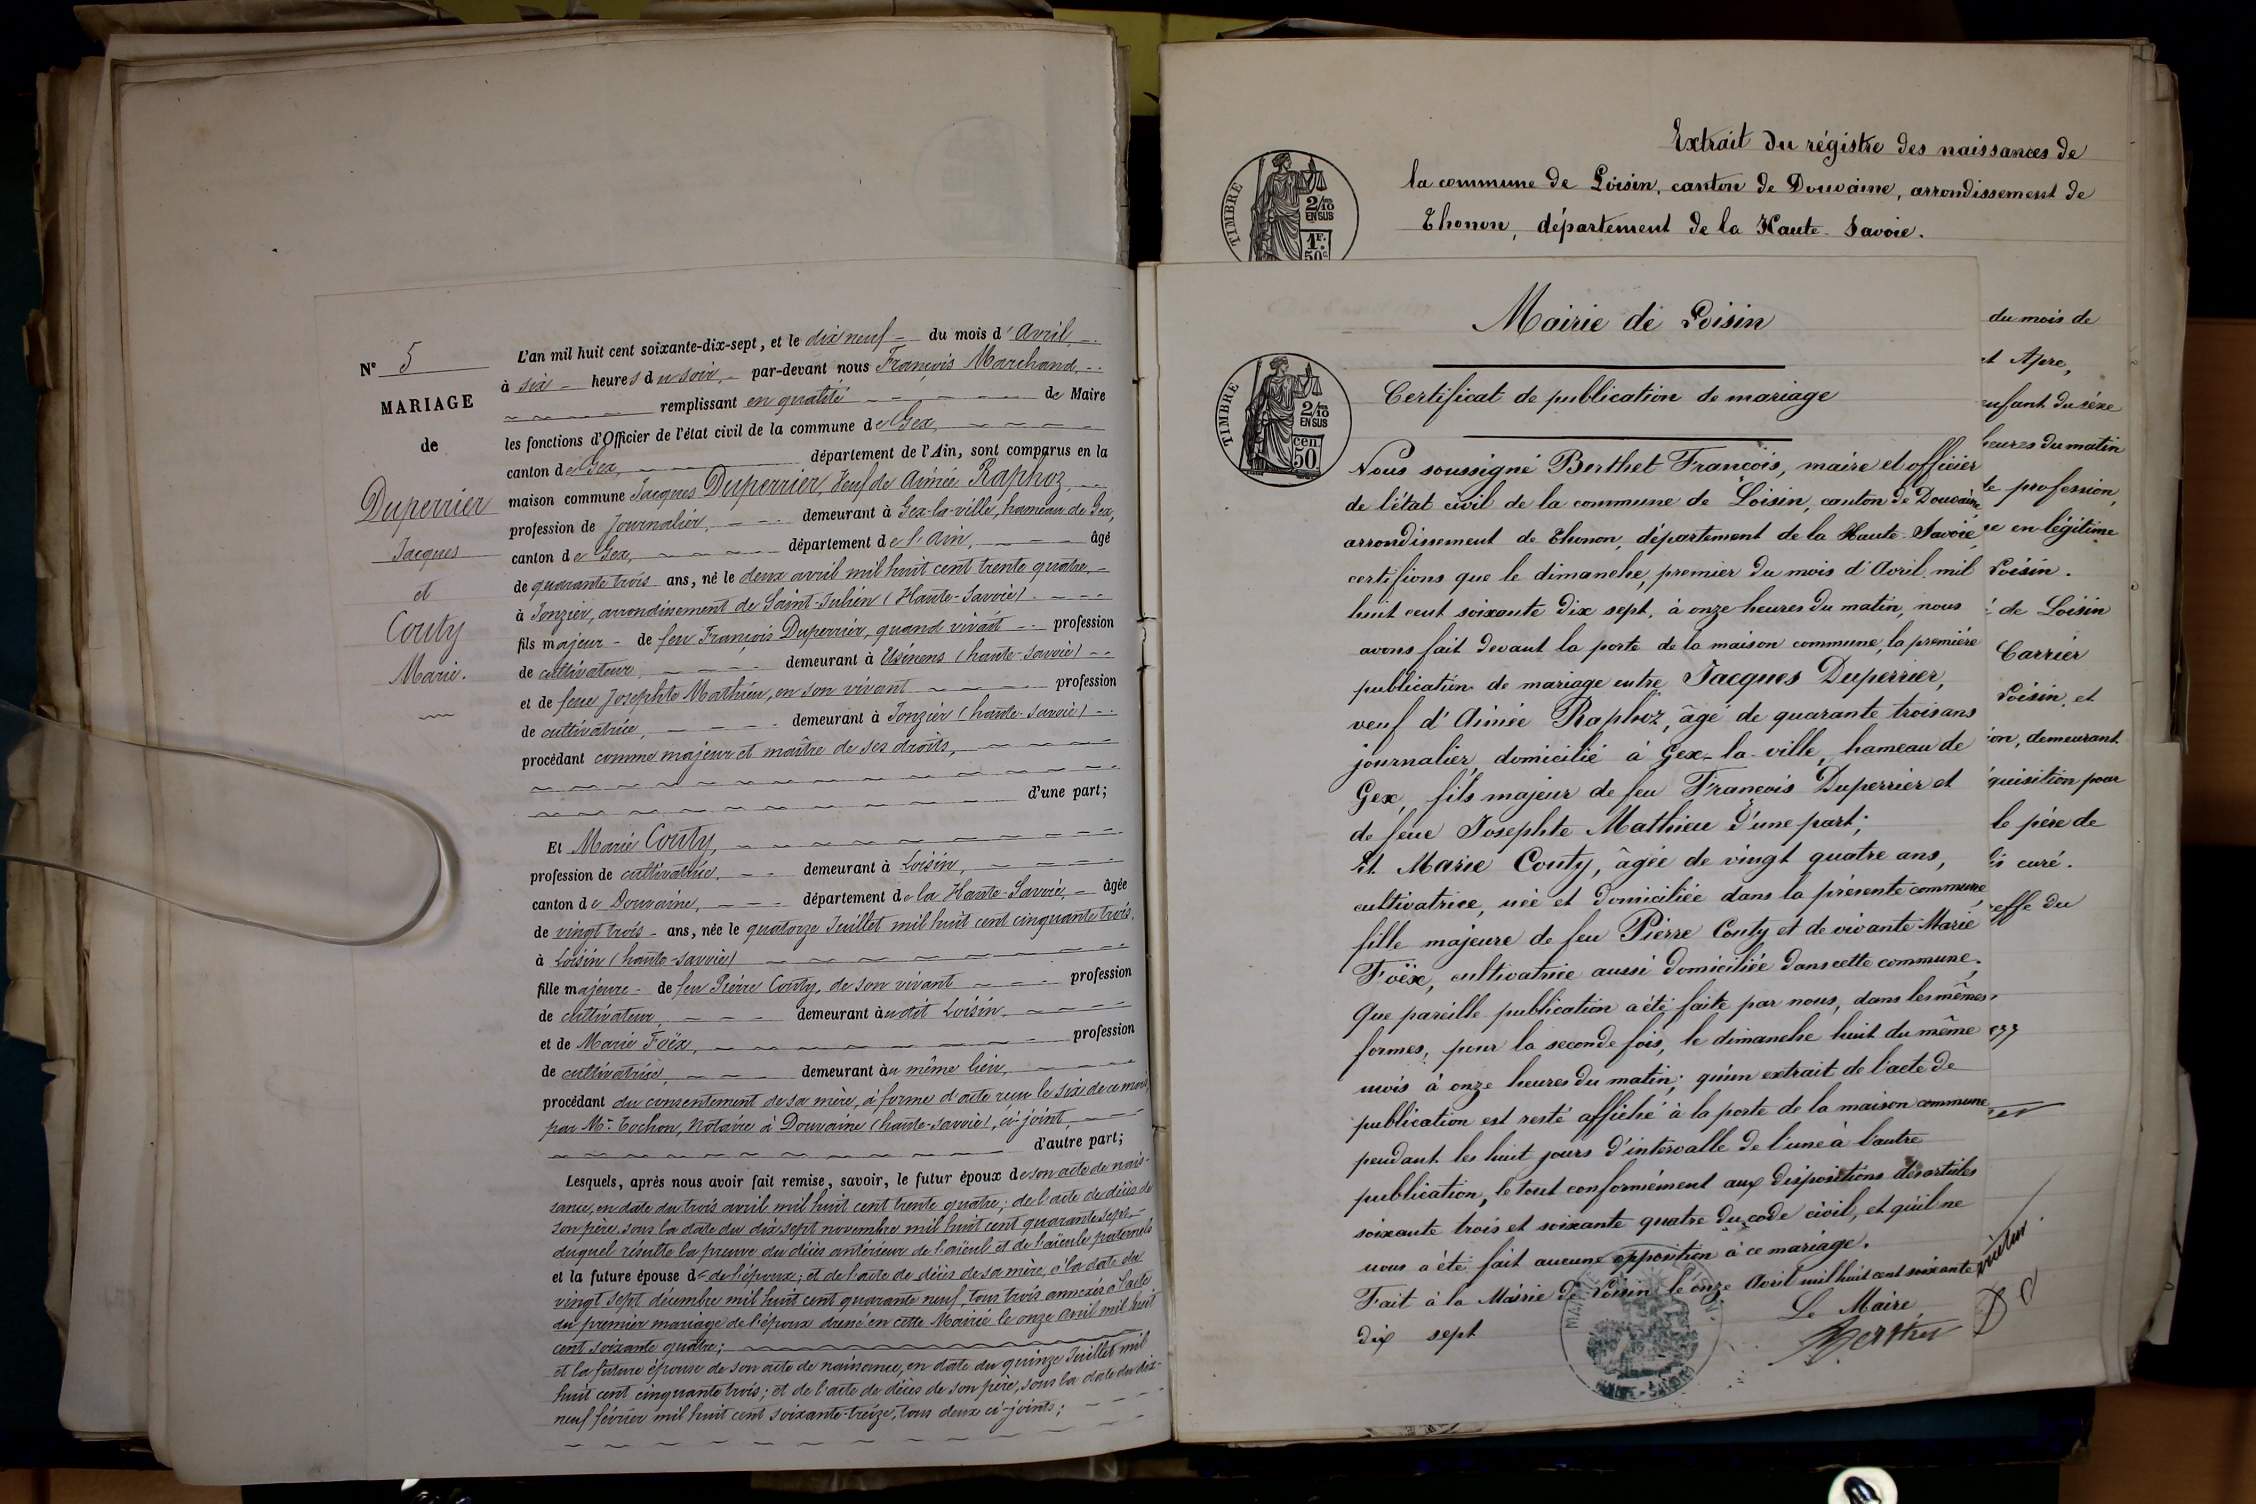 N° 5
MARIAGE
de
Duperrier
Jacques
et
Couty
Marie.
L'an mil huit cent soixante-dix-sept, et le dix neuf du mois d'Avril
à six heures du soir, par-devant nous François Marchand,
remplissant en qualité de Maire
les fonctions d'Officier de l'état civil de la commune de Gex,
canton de Gex, département de l'Ain, sont comparus en la
maison commune Jacques Duperrier, Veuf de Aimée Raphoz,
profession de Journalier, demeurant à Gex-la-ville, hameau de Gex,
canton de Gex, département de l'Ain, âgé
de quarante trois ans, né le deux avril mil huit cent trente quatre,
à Jonzier, arrondissement de Saint-Julien (Haute-Savoie)
fils majeur de feu François Duperrier, quand vivait profession
de cultivateur, demeurant à Usinens (haute-savoie)
et de feue Josephte Mathieu, en son vivant profession
de cultivatrice, demeurant à Jonzier (haute-savoie)
procédant comme majeur et maître de ses droits,
d'une part;
Et Marie Couty,
profession de cultivatrice, demeurant à Loisin,
canton de Douvaine, département de la Haute-Savoie, âgée
de vingt trois ans, née le quatorze Juillet mil huit cent cinquante trois,
à Loisin (haute-savoie)
fille majeure de feu Pierre Couty, de son vivant profession
de cultivateur, demeurant audit Loisin,
et de Marie Foëx, profession
de cultivatrice, demeurant au même lieu,
procédant du consentement de sa mère, à forme d'acte reçu le six de ce mois
par Me Cochon, Notaire à Douvaine (haute-savoie), ci-joint,
d'autre part;
Lesquels, après nous avoir fait remise, savoir, le futur époux de son acte de nais-
sance, en date du trois avril mil huit cent trente quatre; de l'acte de décès de
son père, sous la date du dix sept novembre mil huit cent quarante sept,
duquel résulte la preuve du décès antérieur de l'aïeul et de l'aïeule paternels
et la future épouse d de l'époux; et de l'acte de décès de sa mère, à la date du
vingt sept décembre mil huit cent quarante neuf, tous trois annexés à l'acte
du premier mariage de l'époux dressé en cette Mairie le onze avril mil huit
cent soixante quatre;
et la future épouse de son acte de naissance, en date du quinze Juillet mil
huit cent cinquante trois; et de l'acte de décès de son père, sous la date du dix-
neuf février mil huit cent soixante-treize, tous deux ci-joints;
Extrait du régistre des naissances de
la commune de Loisin, canton de Douvaine, arrondissement de
Thonon, département de la Haute-Savoie.
TIMBRE
2/10
EN SUS
1F.
50c
Mairie de Loisin
Certificat de publication de mariage
TIMBRE
2/10
EN SUS
cen
50
Nous soussigné Berthet François, maire et officier
de l'état civil de la commune de Loisin, canton de Douvaine
arrondissement de Thonon, département de la Haute-Savoie
certifions que le dimanche, premier du mois d'Avril mil
huit cent soixante dix sept, à onze heures du matin, nous
avons fait devant la porte de la maison commune, la première
publication de mariage entre Jacques Duperrier,
veuf d'Aimée Raphoz, âgé de quarante trois ans
journalier, domicilié à Gex-la-ville, hameau de
Gex, fils majeur de feu François Duperrier et
de feue Josephte Mathieu d'une part;
Et Marie Couty, âgée de vingt quatre ans,
cultivatrice, née et domiciliée dans la présente commune,
fille majeure de feu Pierre Couty et de vivante Marie
Foëx, cultivatrice aussi domiciliée dans cette commune.
Que pareille publication a été faite par nous, dans les mêmes
formes, pour la seconde fois, le dimanche huit du même
mois à onze heures du matin; qu'un extrait de l'acte de
publication est resté affiché à la porte de la maison commune
pendant les huit jours d'intervalle de l'une à l'autre
publication, le tout conformément aux dispositions des articles
soixante trois et soixante quatre du code civil, et qu'il ne
nous a été fait aucune opposition à ce mariage.
Fait à la Mairie de Loisin le onze Avril mil huit cent soixante
dix sept
Le Maire
Berthet
du mois de
et Apre,
enfant du sexe
heures du matin
de profession,
en légitime
Loisin.
de Loisin
Carrier
Loisin, et
demeurant
quisition pour
le père de
curé.
greffe du